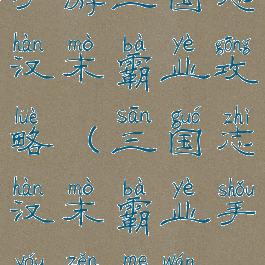 hàn mò bà yè gōng
汉末霸业攻
lüè sān guó zhì
略（三国志
hàn mò bà yè shǒu
汉末霸业手
yóu zěn me wán